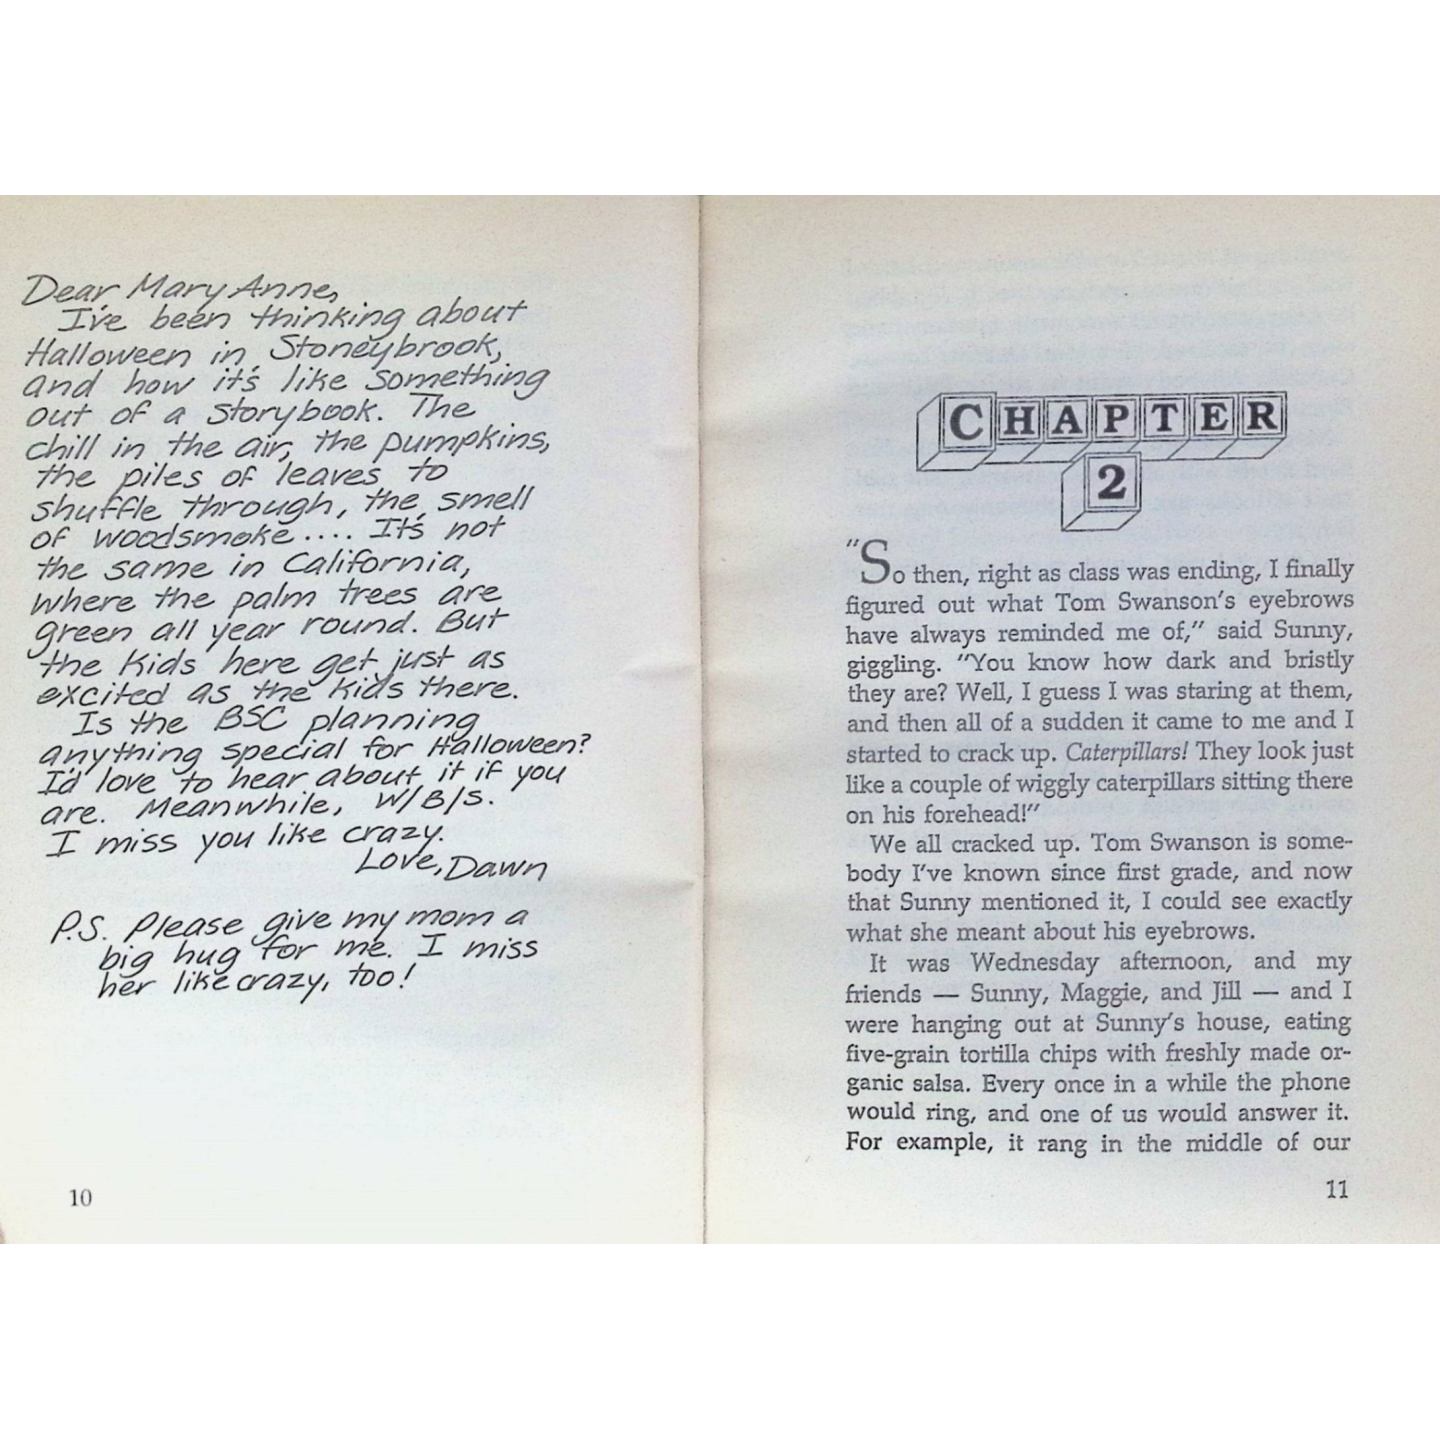 Dear Mary Anne,
I've been thinking about
Halloween in Stoneybrook,
and how it's like something
out of a storybook. The
chill in the air, the pumpkins,
the piles of leaves to
shuffle through, the smell
of woodsmoke.... It's not
the same in California,
where the palm trees are
green all year round. But
the kids here get just as
excited as the kids there.
Is the BSC planning
anything special for Halloween?
I'd love to hear about it if you
are. Meanwhile, W/B/S.
I miss you like crazy.
Love, Dawn
P.S. Please give my mom a
big hug for me. I miss
her like crazy, too!
10
CHAPTER
2
"So then, right as class was ending, I finally
figured out what Tom Swanson's eyebrows
have always reminded me of," said Sunny,
giggling. "You know how dark and bristly
they are? Well, I guess I was staring at them,
and then all of a sudden it came to me and I
started to crack up. Caterpillars! They look just
like a couple of wiggly caterpillars sitting there
on his forehead!"
We all cracked up. Tom Swanson is some-
body I've known since first grade, and now
that Sunny mentioned it, I could see exactly
what she meant about his eyebrows.
It was Wednesday afternoon, and my
friends — Sunny, Maggie, and Jill — and I
were hanging out at Sunny's house, eating
five-grain tortilla chips with freshly made or-
ganic salsa. Every once in a while the phone
would ring, and one of us would answer it.
For example, it rang in the middle of our
11